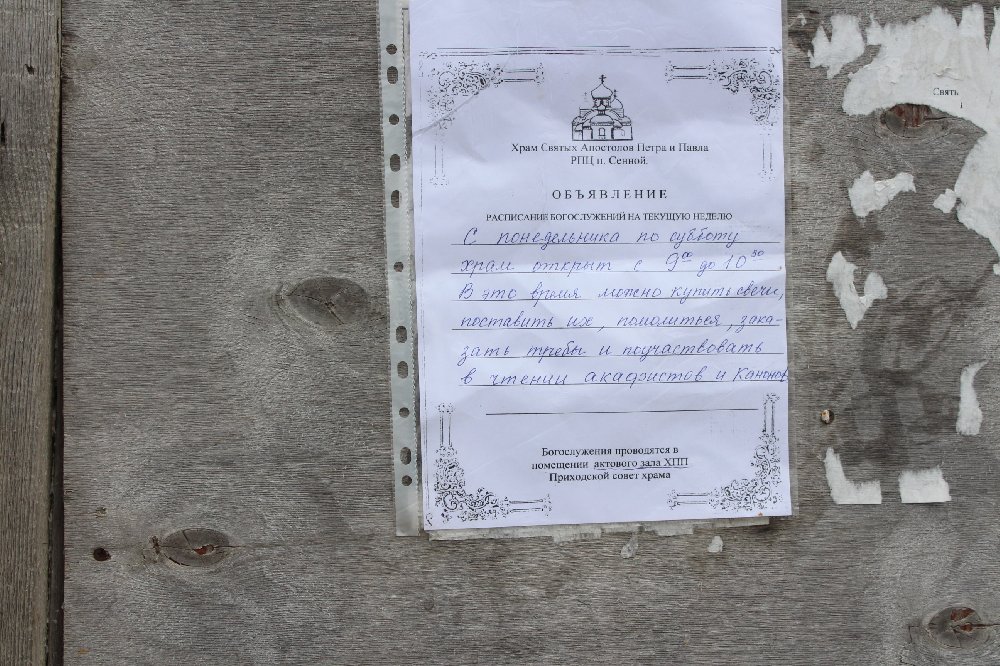 Храм Святых Апостолов Петра и Павла
РПЦ п. Сенной.
ОБЪЯВЛЕНИЕ
РАСПИСАНИЕ БОГОСЛУЖЕНИЙ НА ТЕКУЩУЮ НЕДЕЛЮ
С понедельника по субботу
храм открыт с 9⁰⁰ до 10³⁰
В это время можно купить свечи,
поставить их, помолиться, зака-
зать требы и поучаствовать
в чтении акафистов и канонов
Богослужения проводятся в
помещении актового зала ХПП
Приходской совет храма
Свять